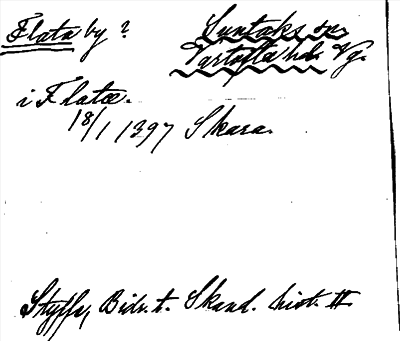 Flata by ?
Suntaks sn
Vartofta hd. Vg.
i Flatæ.
18/1 1397 Skara.
Styffe, Bidr. t. Skand. hist. II